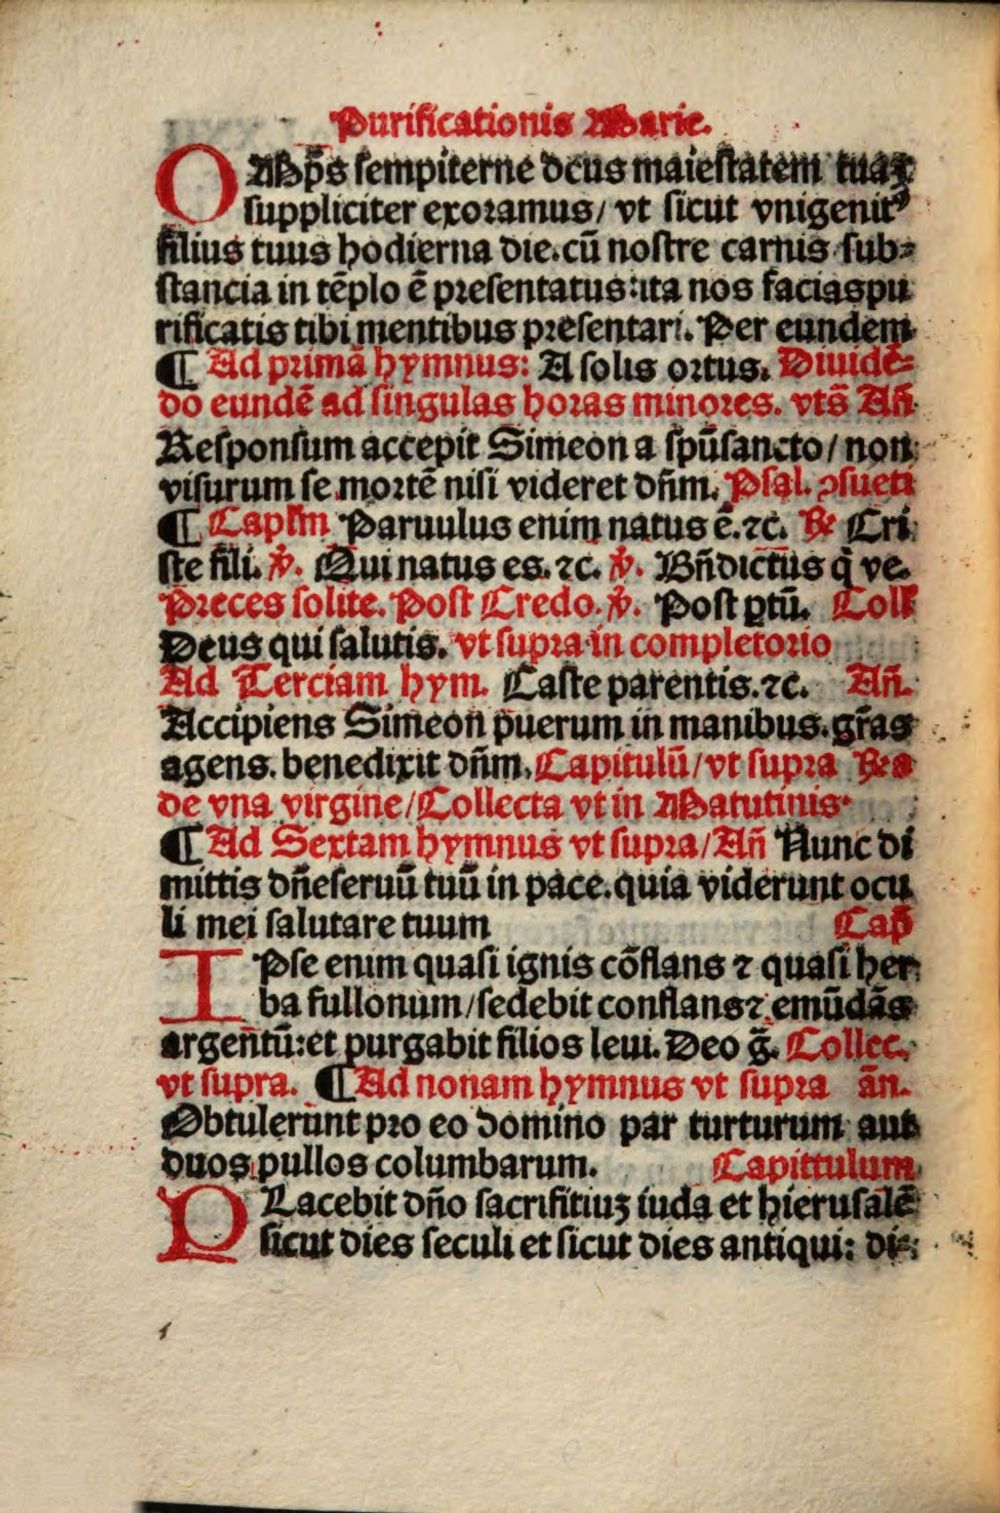 Purificationis Marie.
OMp̄s sempiterne deus maiestatem tuaꝫ
suppliciter exoramus/ vt sicut vnigenitꝰ
filius tuus hodierna die.cū nostre carnis sub⸗
stancia in tēplo ē presentatus:ita nos facias pu
rificatis tibi mentibus presentari. Per eundem
¶ Ad primā hymnus: A solis ortus. Diuidē⸗
do eundē ad singulas horas minores. vts̄ Añ.
Responsum accepit Simeon a spūsancto/ non
visurum se mortē nisi videret dñm. Psal. ꝯsueti
¶ Caplm̄ Paruulus enim natus ē. ⁊c. ℟ Cri
ste fili. ℣. Qui natus es. ⁊c. ℣. Bñdictus q̄ ve.
Preces solite. Post Credo. ℣. Post ꝑtū. Coll̄
Deus qui salutis. vt supra in completorio
Ad Terciam hym. Caste parentis.⁊c. Añ.
Accipiens Simeon puerum in manibus.gr̄as
agens. benedixit dñm. Capitulū/ vt supra ℟a
de vna virgine/ Collecta vt in Matutinis.
¶ Ad Sextam hymnus vt supra/ Añ Nunc di
mittis dñe seruū tuū in pace.quia viderunt ocu
li mei salutare tuum Cap̄
IPse enim quasi ignis cōflans ⁊ quasi her
ba fullonum/sedebit conflans ⁊ emūdās
argentū:et purgabit filios leui. Deo ḡ. Collec.
vt supra. ¶ Ad nonam hymnus vt supra ān.
Obtulerunt pro eo domino par turturum aut
duos pullos columbarum. Capittulum
PLacebit dño sacrifitiuꝫ iuda et hierusalē
sicut dies seculi et sicut dies antiqui: di⸗